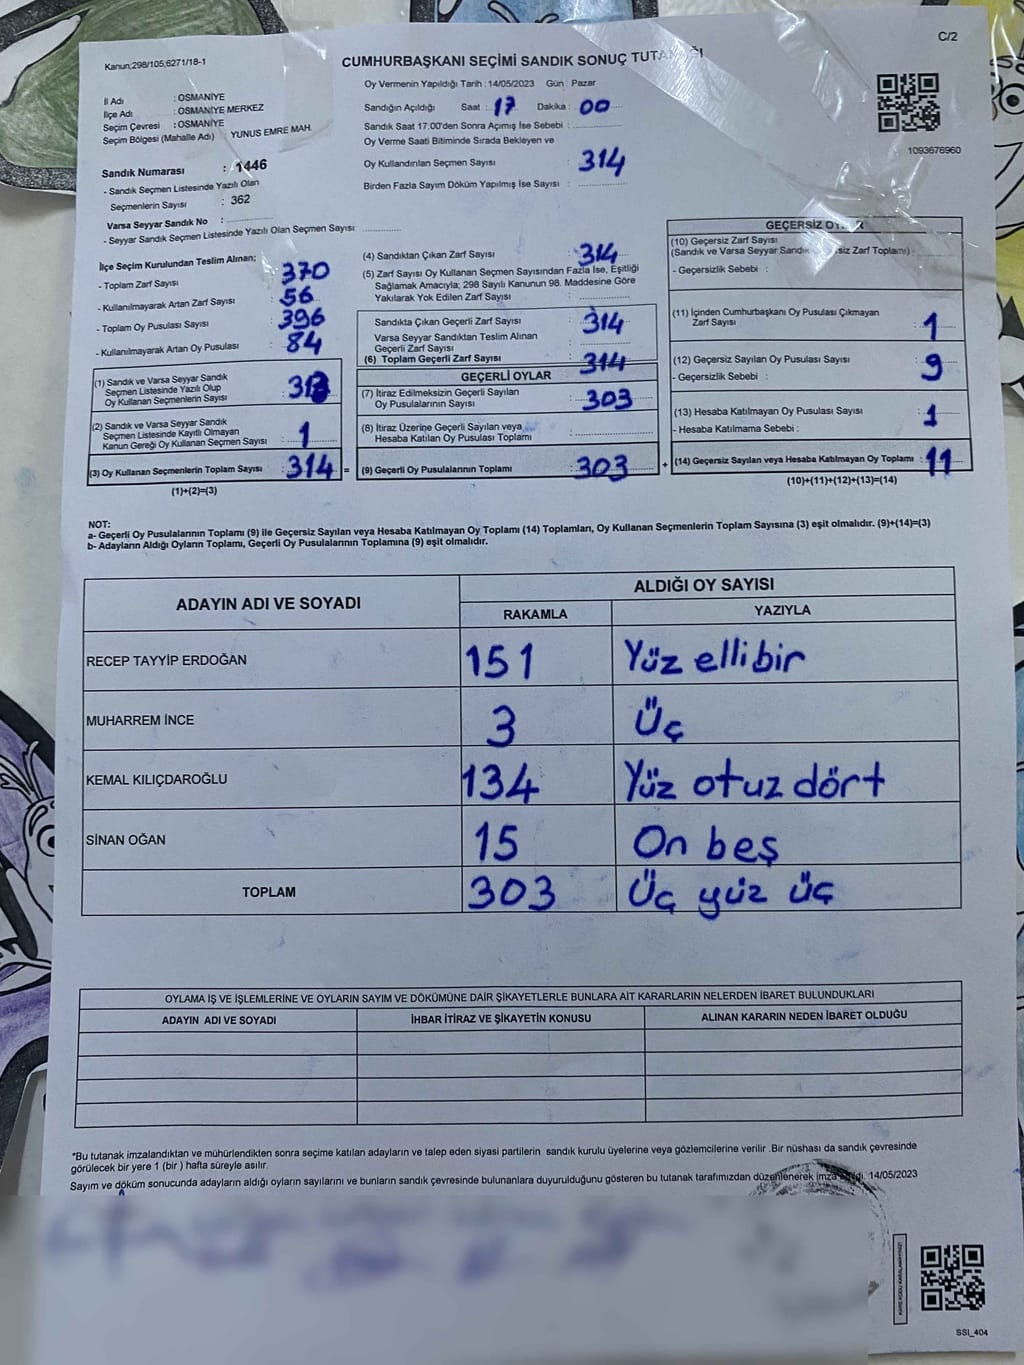 C/2
Kanun;298/105;6271/18-1
CUMHURBAŞKANI SEÇİMİ SANDIK SONUÇ
Oy Vermenin Yapıldığı Tarih : 14/05/2023 Gün : Pazar
İl Adı : OSMANİYE
İlçe Adı : OSMANİYE MERKEZ
Seçim Çevresi : OSMANİYE
Seçim Bölgesi (Mahalle Adı) YUNUS EMRE MAH.
Sandığın Açıldığı Saat : 17 Dakika : 00
Sandık Saat 17:00'den Sonra Açımış İse Sebebi :
Oy Verme Saati Bitiminde Sırada Bekleyen ve
Oy Kullandırılan Seçmen Sayısı : 314
Birden Fazla Sayım Döküm Yapılmış İse Sayısı :
1093676960
Sandık Numarası : 1446
- Sandık Seçmen Listesinde Yazılı Olan
Seçmenlerin Sayısı : 362
Varsa Seyyar Sandık No :
- Seyyar Sandık Seçmen Listesinde Yazılı Olan Seçmen Sayısı:
İlçe Seçim Kurulundan Teslim Alınan;
- Toplam Zarf Sayısı : 370
- Kullanılmayarak Artan Zarf Sayısı : 56
- Toplam Oy Pusulası Sayısı : 396
- Kullanılmayarak Artan Oy Pusulası : 84
(1) Sandık ve Varsa Seyyar Sandık
Seçmen Listesinde Yazılı Olup
Oy Kullanan Seçmenlerin Sayısı : 313
(2) Sandık ve Varsa Seyyar Sandık
Seçmen Listesinde Kayıtlı Olmayan
Kanun Gereği Oy Kullanan Seçmen Sayısı : 1
(3) Oy Kullanan Seçmenlerin Toplam Sayısı : 314 =
(1)+(2)=(3)
(4) Sandıktan Çıkan Zarf Sayısı : 314
(5) Zarf Sayısı Oy Kullanan Seçmen Sayısından Fazla İse, Eşitliği
Sağlamak Amacıyla; 298 Sayılı Kanunun 98. Maddesine Göre
Yakılarak Yok Edilen Zarf Sayısı :
Sandıkta Çıkan Geçerli Zarf Sayısı : 314
Varsa Seyyar Sandıktan Teslim Alınan
Geçerli Zarf Sayısı :
(6) Toplam Geçerli Zarf Sayısı : 314
GEÇERLİ OYLAR
(7) İtiraz Edilmeksizin Geçerli Sayılan
Oy Pusulalarının Sayısı : 303
(8) İtiraz Üzerine Geçerli Sayılan veya
Hesaba Katılan Oy Pusulası Toplamı :
(9) Geçerli Oy Pusulalarının Toplamı : 303 +
GEÇERSİZ
(10) Geçersiz Zarf Sayısı
(Sandık ve Varsa Seyyar Sandık Zarf Toplamı) :
- Geçersizlik Sebebi :
(11) İçinden Cumhurbaşkanı Oy Pusulası Çıkmayan
Zarf Sayısı : 1
(12) Geçersiz Sayılan Oy Pusulası Sayısı : 9
- Geçersizlik Sebebi :
(13) Hesaba Katılmayan Oy Pusulası Sayısı : 1
- Hesaba Katılmama Sebebi :
(14) Geçersiz Sayılan veya Hesaba Katılmayan Oy Toplamı : 11
(10)+(11)+(12)+(13)=(14)
NOT:
a- Geçerli Oy Pusulalarının Toplamı (9) ile Geçersiz Sayılan veya Hesaba Katılmayan Oy Toplamı (14) Toplamları, Oy Kullanan Seçmenlerin Toplam Sayısına (3) eşit olmalıdır. (9)+(14)=(3)
b- Adayların Aldığı Oyların Toplamı, Geçerli Oy Pusulalarının Toplamına (9) eşit olmalıdır.
ADAYIN ADI VE SOYADI
ALDIĞI OY SAYISI
RAKAMLA YAZIYLA
RECEP TAYYİP ERDOĞAN 151 Yüz elli bir
MUHARREM İNCE 3 Üç
KEMAL KILIÇDAROĞLU 134 Yüz otuz dört
SİNAN OĞAN 15 On beş
TOPLAM 303 Üç yüz üç
OYLAMA İŞ VE İŞLEMLERİNE VE OYLARIN SAYIM VE DÖKÜMÜNE DAİR ŞİKAYETLERLE BUNLARA AİT KARARLARIN NELERDEN İBARET BULUNDUKLARI
ADAYIN ADI VE SOYADI İHBAR İTİRAZ VE ŞİKAYETİN KONUSU ALINAN KARARIN NEDEN İBARET OLDUĞU
*Bu tutanak imzalandıktan ve mühürlendikten sonra seçime katılan adayların ve talep eden siyasi partilerin sandık kurulu üyelerine veya gözlemcilerine verilir .Bir nüshası da sandık çevresinde
görülecek bir yere 1 (bir ) hafta süreyle asılır.
Sayım ve döküm sonucunda adayların aldığı oyların sayılarını ve bunların sandık çevresinde bulunanlara duyurulduğunu gösteren bu tutanak tarafımızdan düzenlenerek 14/05/2023
SSI_404